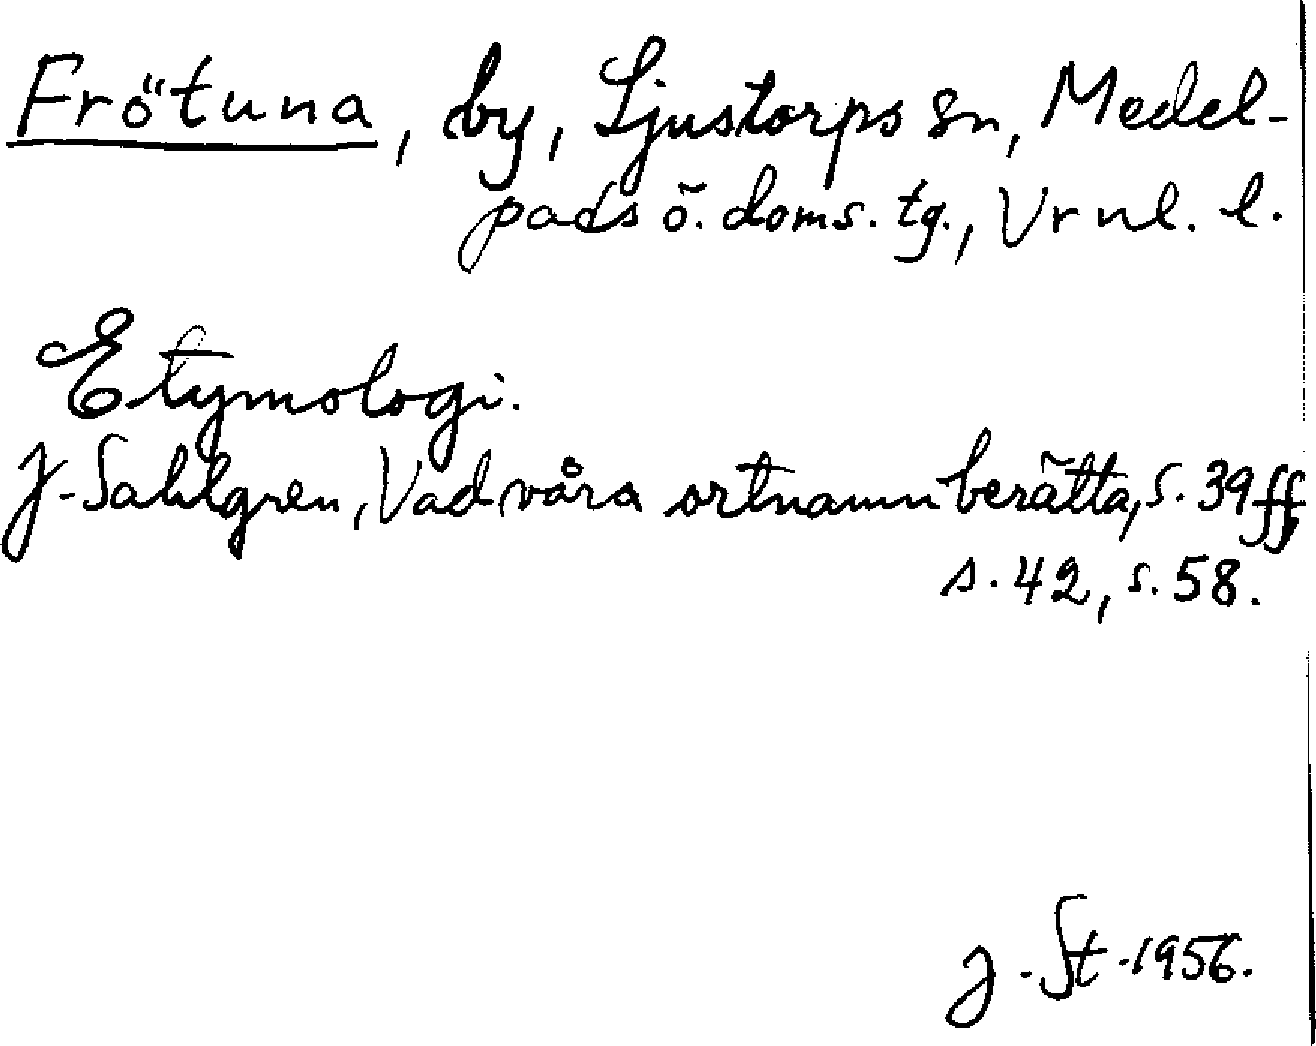 Frötuna, by, Ljustorps sn, Medel-
pads ö. doms. tg., Vrnl. l.
Etymologi.
J. Sahlgren, Vad våra ortnamn berätta, s. 39 ff
s. 42, s. 58.
J. St. 1956.